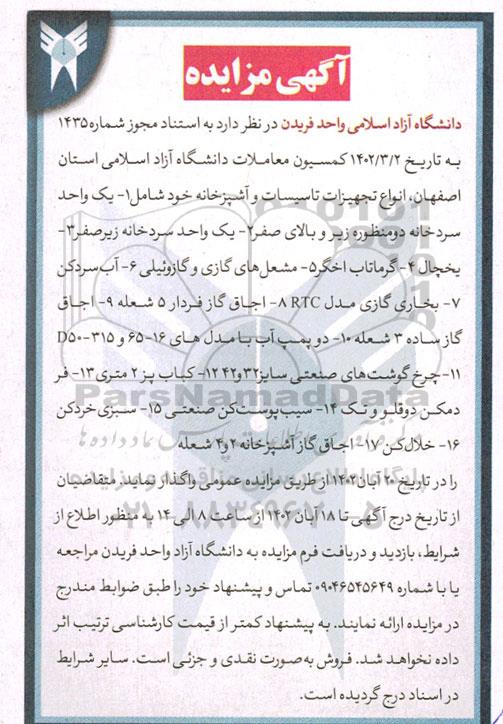 آگهی مزایده
دانشگاه آزاد اسلامی واحد فریدن در نظر دارد به استناد مجوز شماره ۱۴۳۵
به تاریخ ۱۴۰۲/۳/۲ کمسیون معاملات دانشگاه آزاد اسلامی استان
اصفهان، انواع تجهیزات تاسیسات و آشپزخانه خود شامل ۱- یک واحد
سردخانه دومنظوره زیر و بالای صفر ۲- یک واحد سردخانه زیرصفر ۳-
یخچال ۴- گرماتاب اخگر ۵- مشعل‌های گازی و گازوئیلی ۶- آب‌سردکن
۷- بخاری گازی مدل RTC ۸- اجاق گاز فردار ۵ شعله ۹- اجاق
گاز ساده ۳ شعله ۱۰- دو پمپ آب با مدل های ۱۶-۶۵ و ۳۱۵-D۵۰
۱۱- چرخ گوشت‌های صنعتی سایز ۳۲و۴۲ ۱۲- کباب پز ۲ متری ۱۳- فر
دمکن دوقلو و تک ۱۴- سیب‌پوست‌کن صنعتی ۱۵- سبزی‌خردکن
۱۶- خلال‌کن ۱۷- اجاق گاز آشپزخانه ۲و۴ شعله
را در تاریخ ۲۰ آبان ۱۴۰۲ از طریق مزایده عمومی واگذار نماید. متقاضیان
از تاریخ درج آگهی تا ۱۸ آبان ۱۴۰۲ از ساعت ۸ الی ۱۴ به منظور اطلاع از
شرایط، بازدید و دریافت فرم مزایده به دانشگاه آزاد واحد فریدن مراجعه
یا با شماره ۰۹۰۴۶۵۴۵۶۴۹ تماس و پیشنهاد خود را طبق ضوابط مندرج
در مزایده ارائه نمایند. به پیشنهاد کمتر از قیمت کارشناسی ترتیب اثر
داده نخواهد شد. فروش به‌صورت نقدی و جزئی است. سایر شرایط
در اسناد درج گردیده است.
ParsNamadData